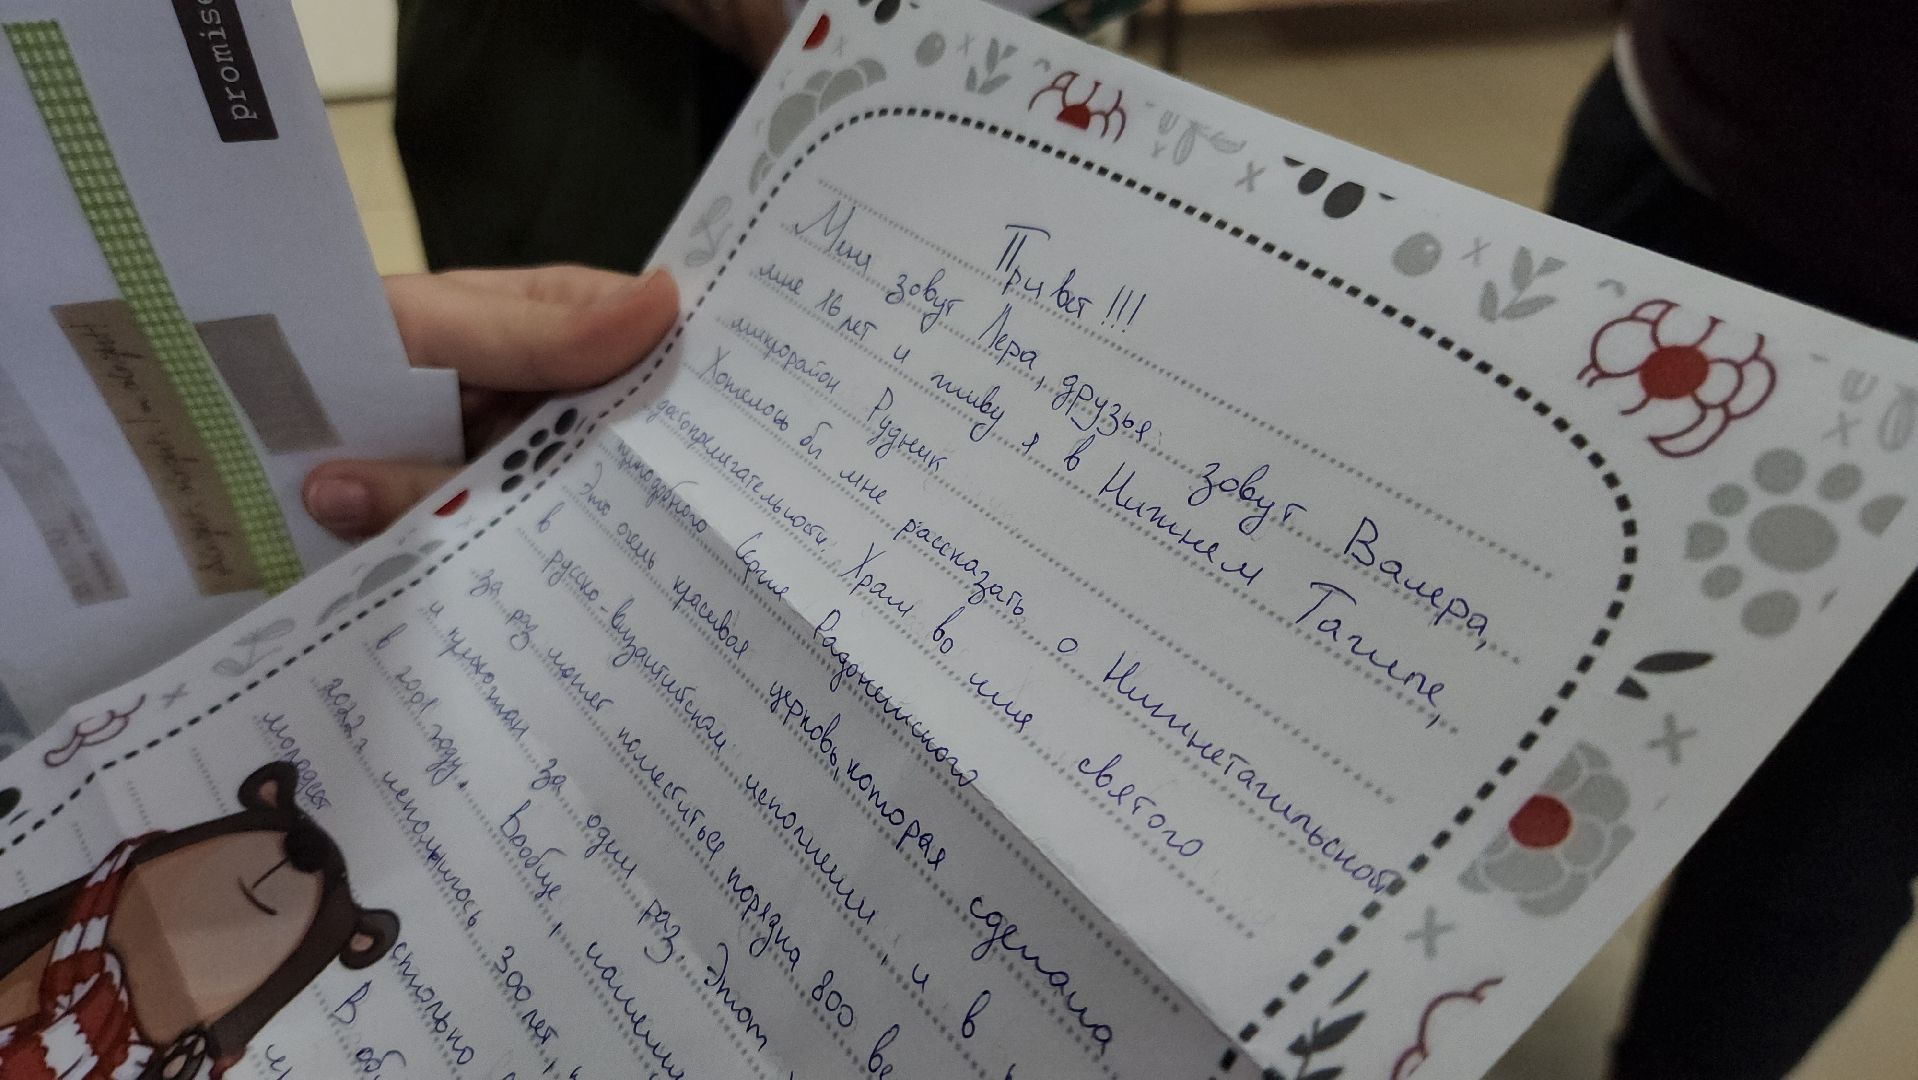 promise
Привет!!!
Меня зовут Лера, друзья зовут Валера,
мне 16 лет и живу я в Нижнем Тагиле,
микрорайон Рудник
Хотелось бы мне рассказать о Нижнетагильской
достопримечательности. Храм во имя святого
преподобного Сергие Радонежского
Это очень красивая церковь, которая сделана
в русско-византийском исполнении, и в
за раз может поместиться порядка 800
и прихожан за один раз. Этот
в 2001 году. Вообще,
2022 г исполнилось 300 лет,
молодеет столько
В